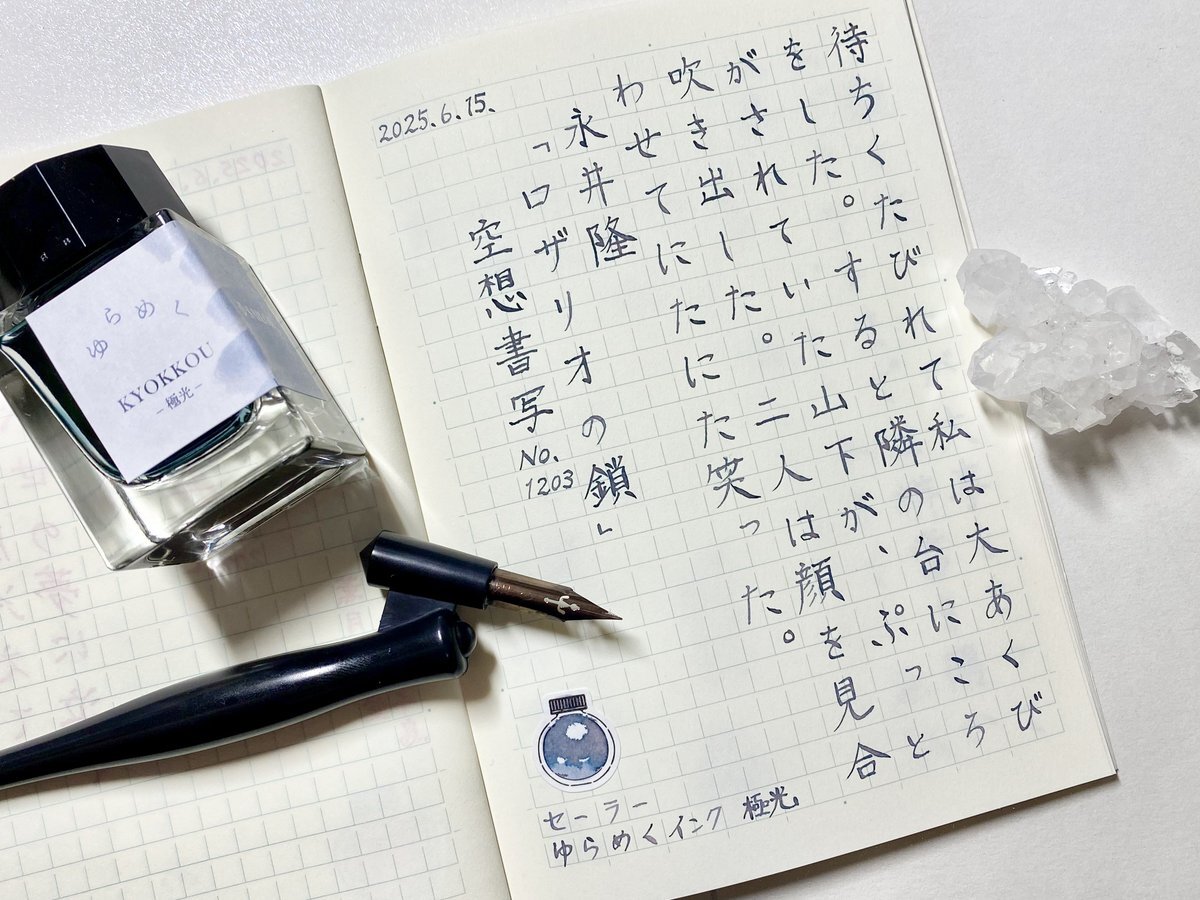 2025.6.15.
待ちくたびれて私は大あくび
をした。すると隣の台にころ
がされていた山下が、ぷっと
吹き出した。二人は顔を見合
わせてにたにた笑った。
永井隆
「ロザリオの鎖」
空想書写
No.
1203
セーラー
ゆらめくインク 極光。
ゆらめく
KYOKKOU
-極光-